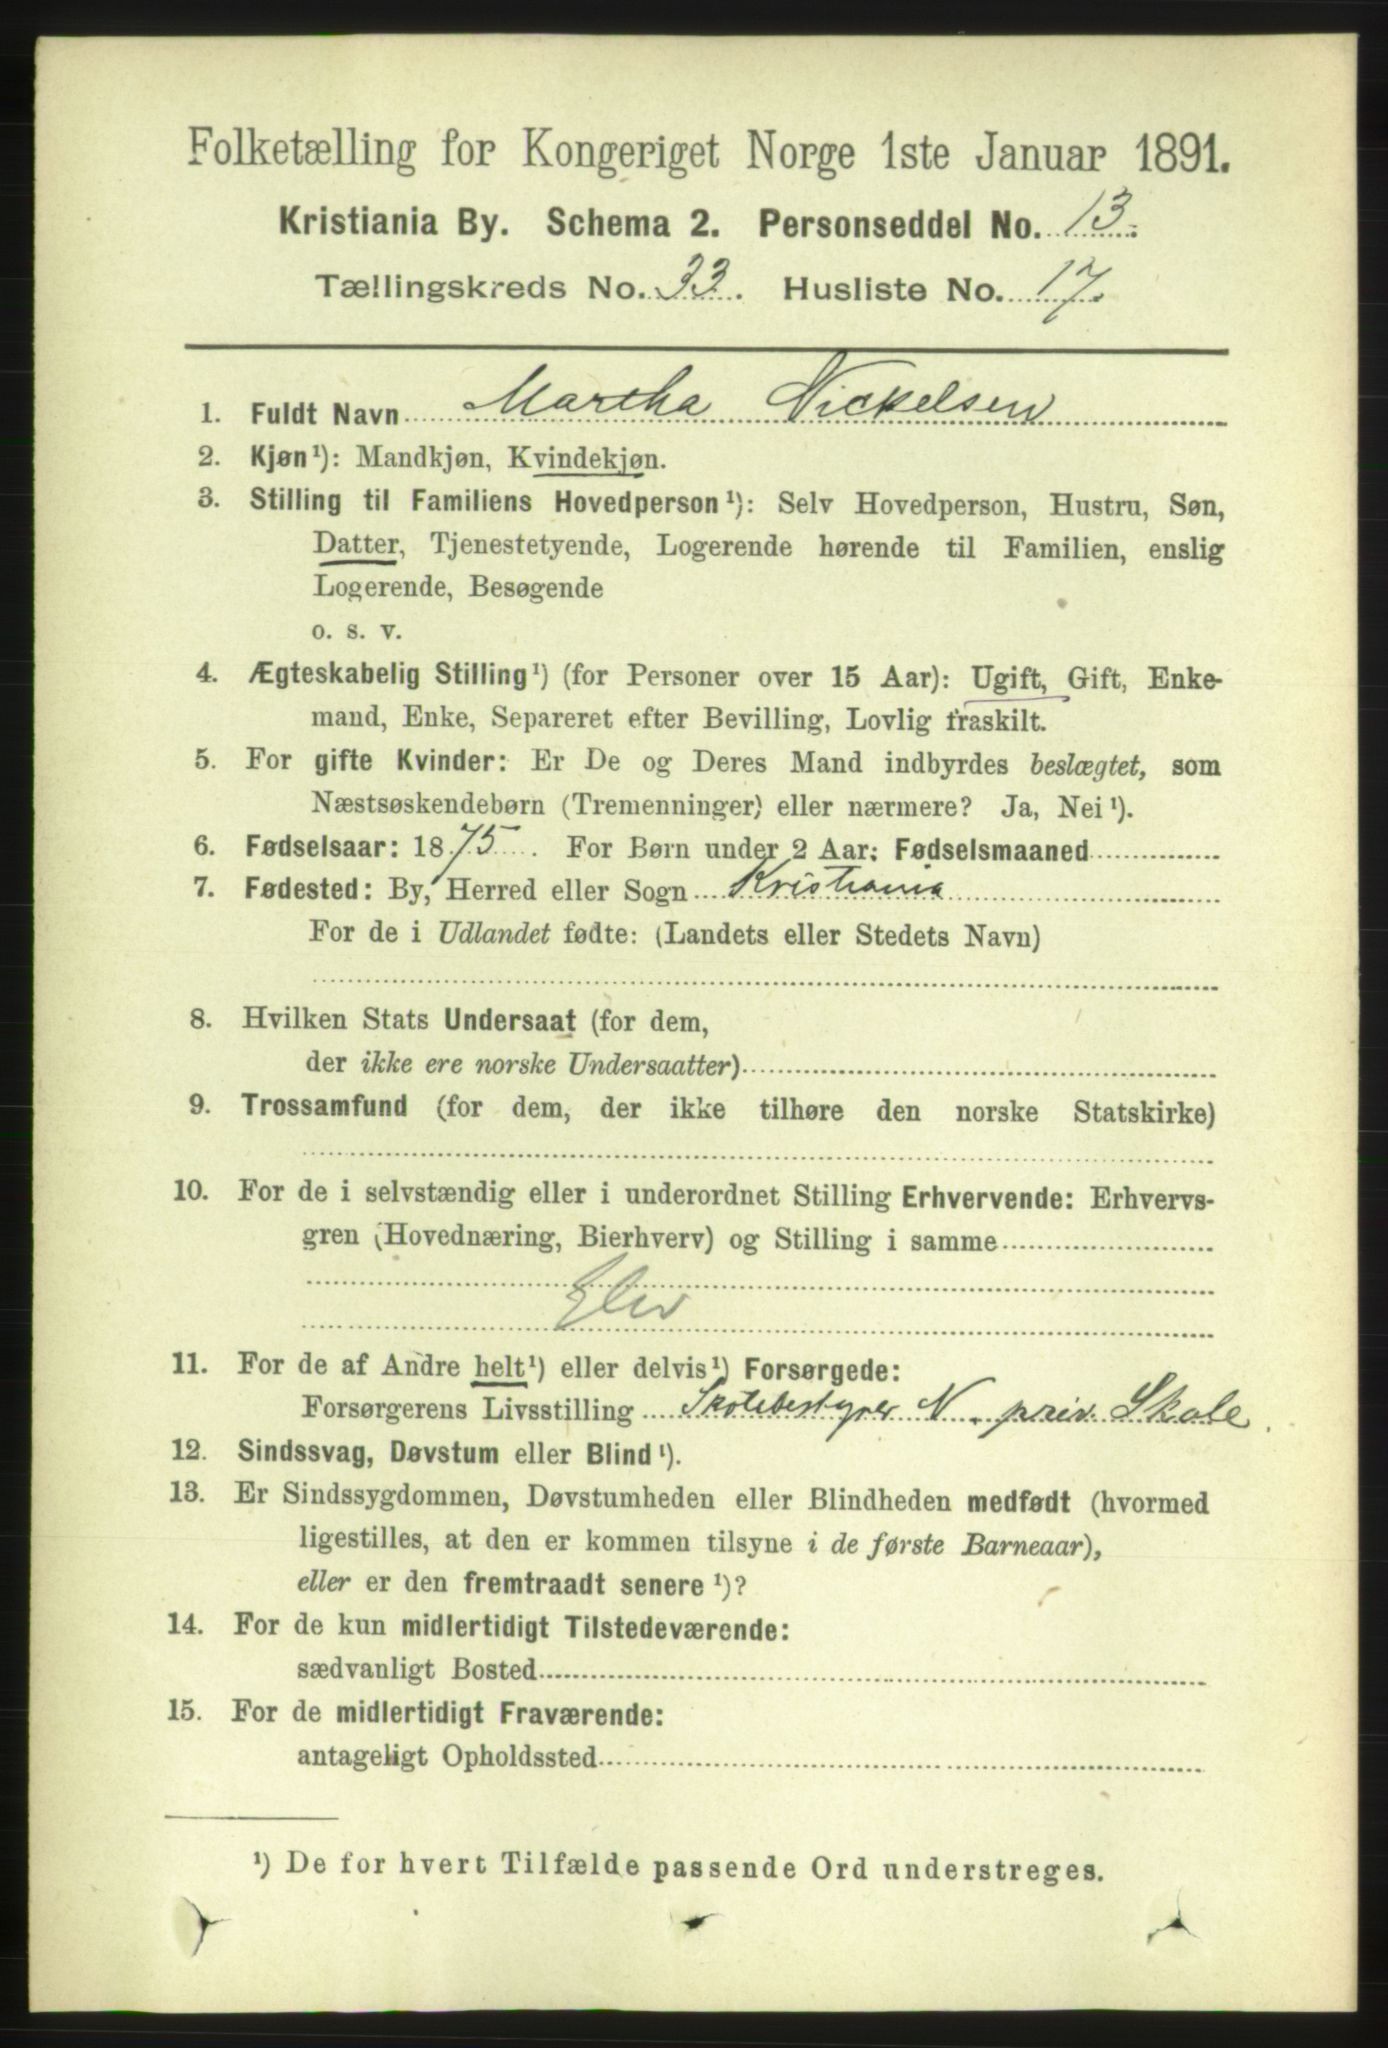 Folketælling for Kongeriget Norge 1ste Januar 1891.
Kristiania By. Schema 2. Personseddel No. 13.
Tællingskreds No. 33. Husliste No. 17.
1. Fuldt Navn Martha Nickelsen
2. Kjøn¹): Mandkjøn, Kvindekjøn.
3. Stilling til Familiens Hovedperson¹): Selv Hovedperson, Hustru, Søn,
Datter, Tjenestetyende, Logerende hørende til Familien, enslig
Logerende, Besøgende
o. s. v.
4. Ægteskabelig Stilling¹) (for Personer over 15 Aar): Ugift, Gift, Enke-
mand, Enke, Separeret efter Bevilling, Lovlig fraskilt.
5. For gifte Kvinder: Er De og Deres Mand indbyrdes beslægtet, som
Næstsøskendebørn (Tremenninger) eller nærmere? Ja, Nei¹).
6. Fødselsaar: 1875. For Børn under 2 Aar: Fødselsmaaned
7. Fødested: By, Herred eller Sogn Kristiania
For de i Udlandet fødte: (Landets eller Stedets Navn)
8. Hvilken Stats Undersaat (for dem,
der ikke ere norske Undersaatter)
9. Trossamfund (for dem, der ikke tilhøre den norske Statskirke)
10. For de i selvstændig eller i underordnet Stilling Erhvervende: Erhvervs-
gren (Hovednæring, Bierhverv) og Stilling i samme
Elev
11. For de af Andre helt¹) eller delvis¹) Forsørgede:
Forsørgerens Livsstilling Skolebestyrer N. priv. Skole
12. Sindssvag, Døvstum eller Blind¹).
13. Er Sindssygdommen, Døvstumheden eller Blindheden medfødt (hvormed
ligestilles, at den er kommen tilsyne i de første Barneaar),
eller er den fremtraadt senere¹)?
14. For de kun midlertidigt Tilstedeværende:
sædvanligt Bosted
15. For de midlertidigt Fraværende:
antageligt Opholdssted
¹) De for hvert Tilfælde passende Ord understreges.